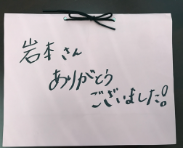 岩本さん
ありがとう
ございました!